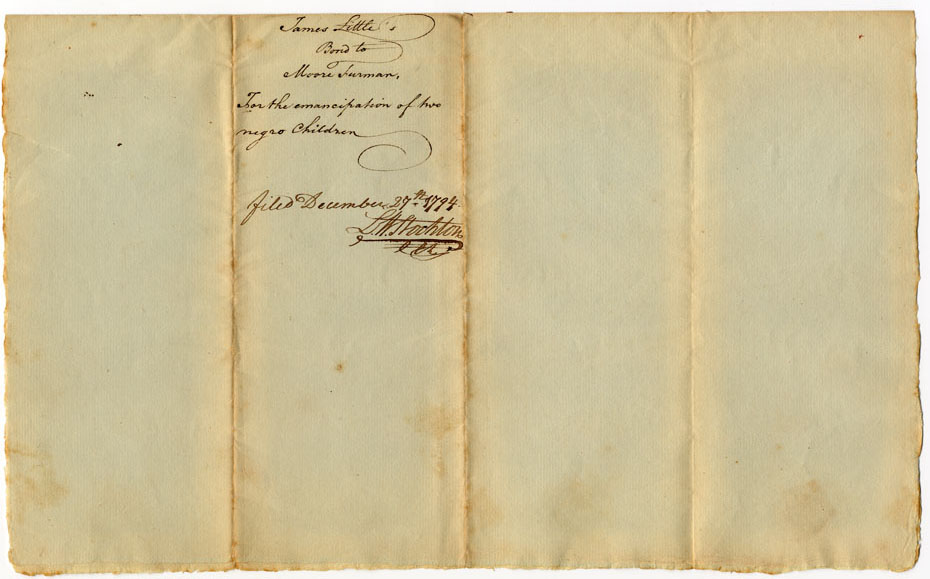 James Little's
Bond to
Moore Furman,
For the emancipation of two
negro Children
filed December 27th 1794
L. W. Stockton
Clk